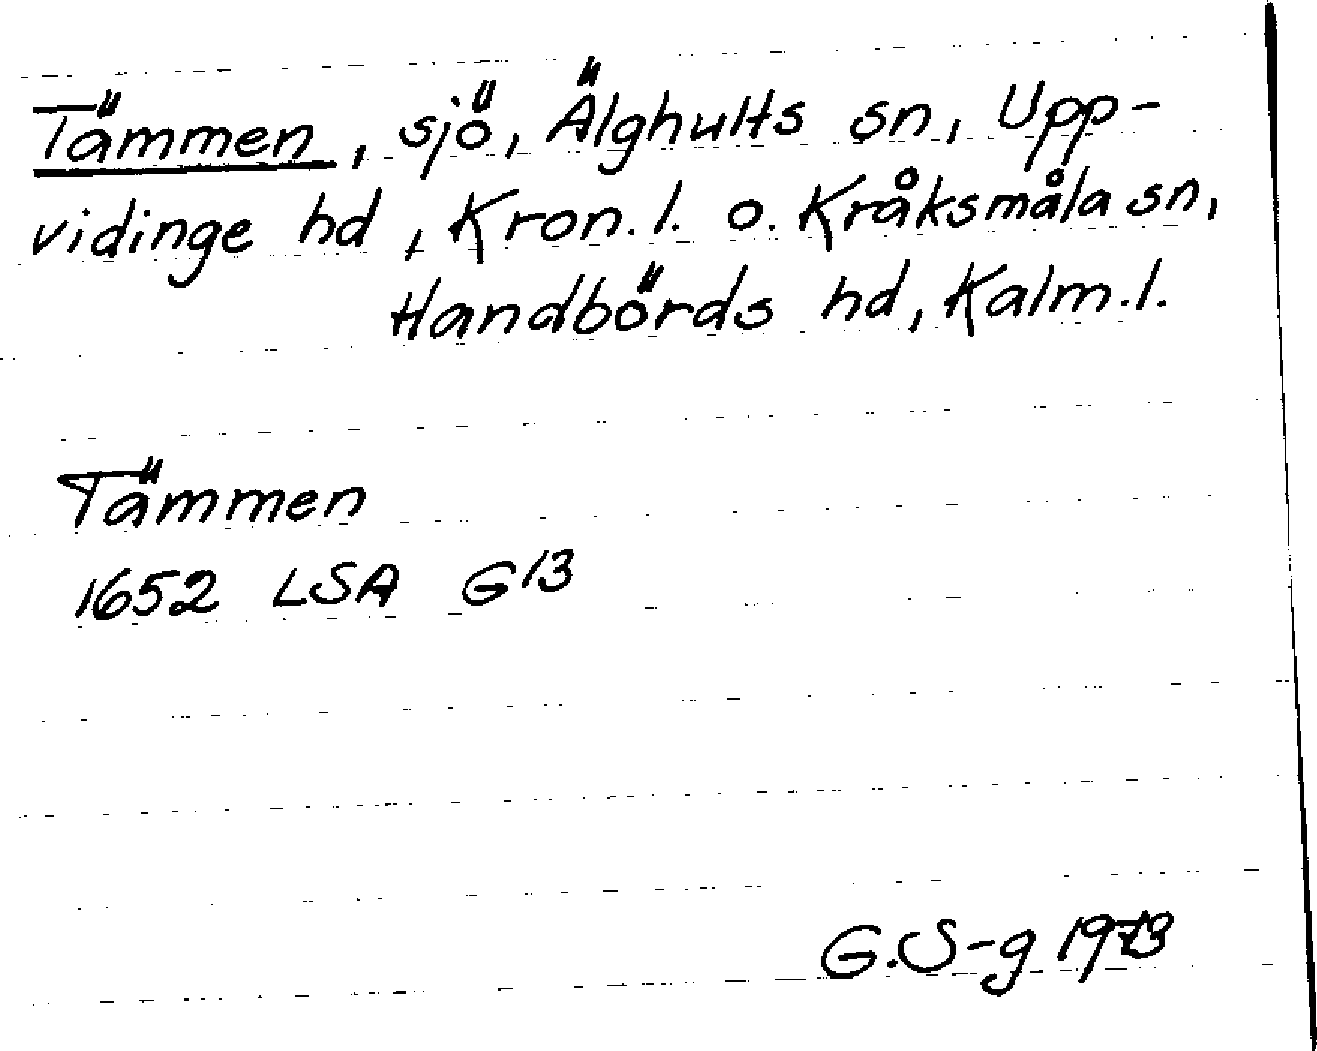 Tämmen, sjö, Älghults sn, Upp-
vidinge hd, Kron. l. o. Kråksmåla sn,
Handbörds hd, Kalm. l.
Tämmen
1652 LSA G 13
G. S-g 1973